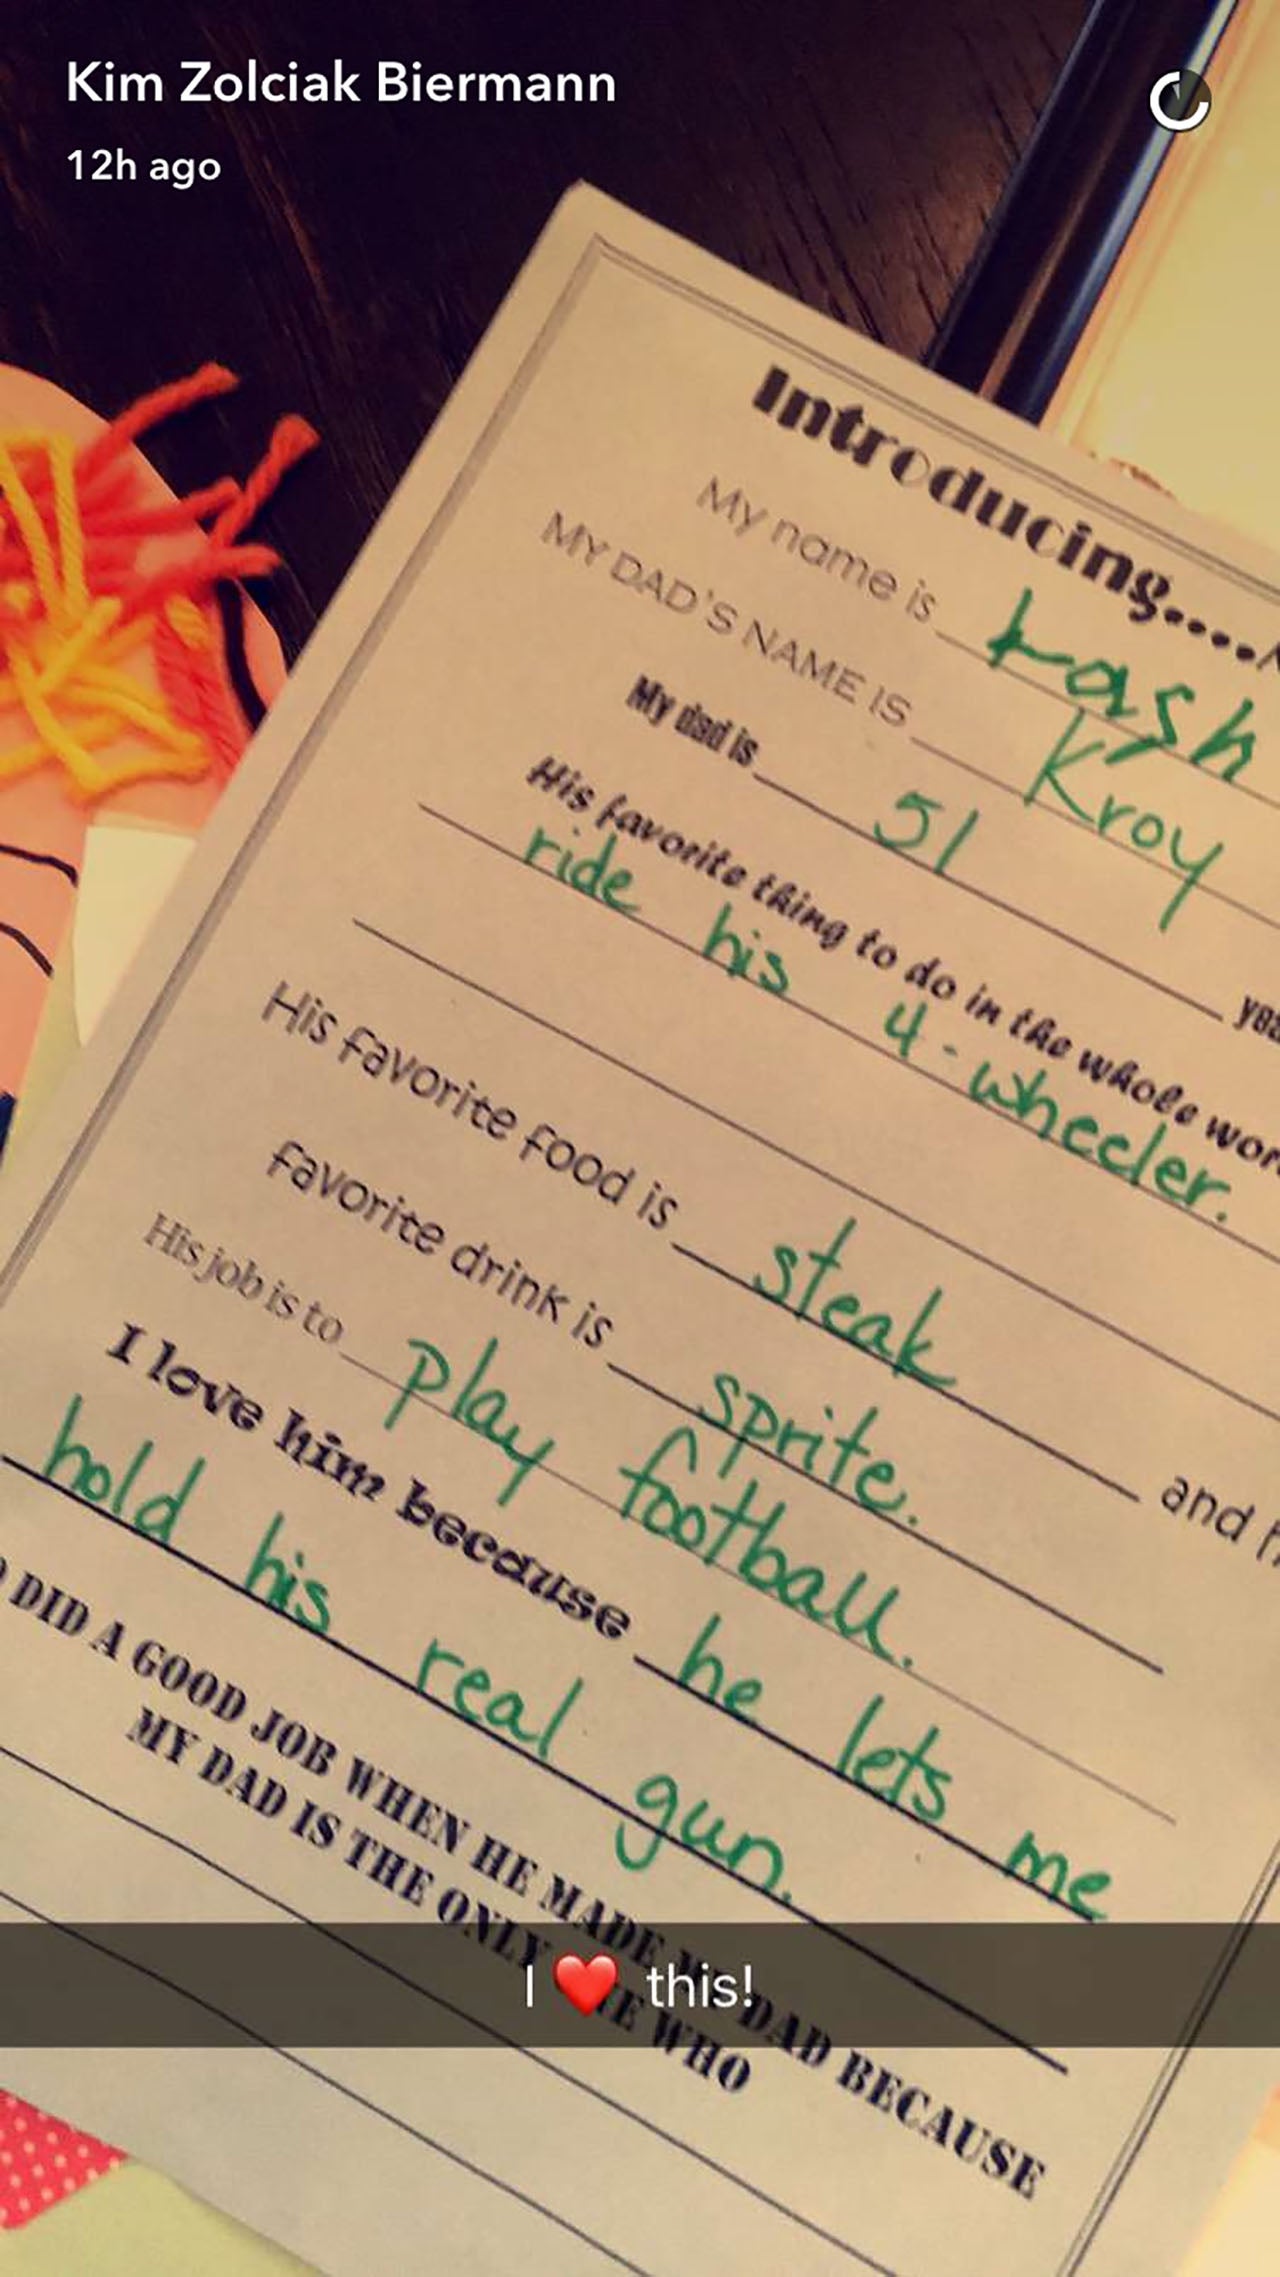 Kim Zolciak Biermann
12h ago
Introducing....
My name is kash
MY DAD'S NAME IS Kroy
My dad is 51
His favorite thing to do in the whole
ride his 4-wheeler.
His favorite food is steak and
favorite drink is sprite.
His job is to play football.
I love him because he lets me
hold his real gun.
DID A GOOD JOB WHEN HE MADE MY DAD BECAUSE
MY DAD IS THE ONLY ONE WHO
I ❤️ this!